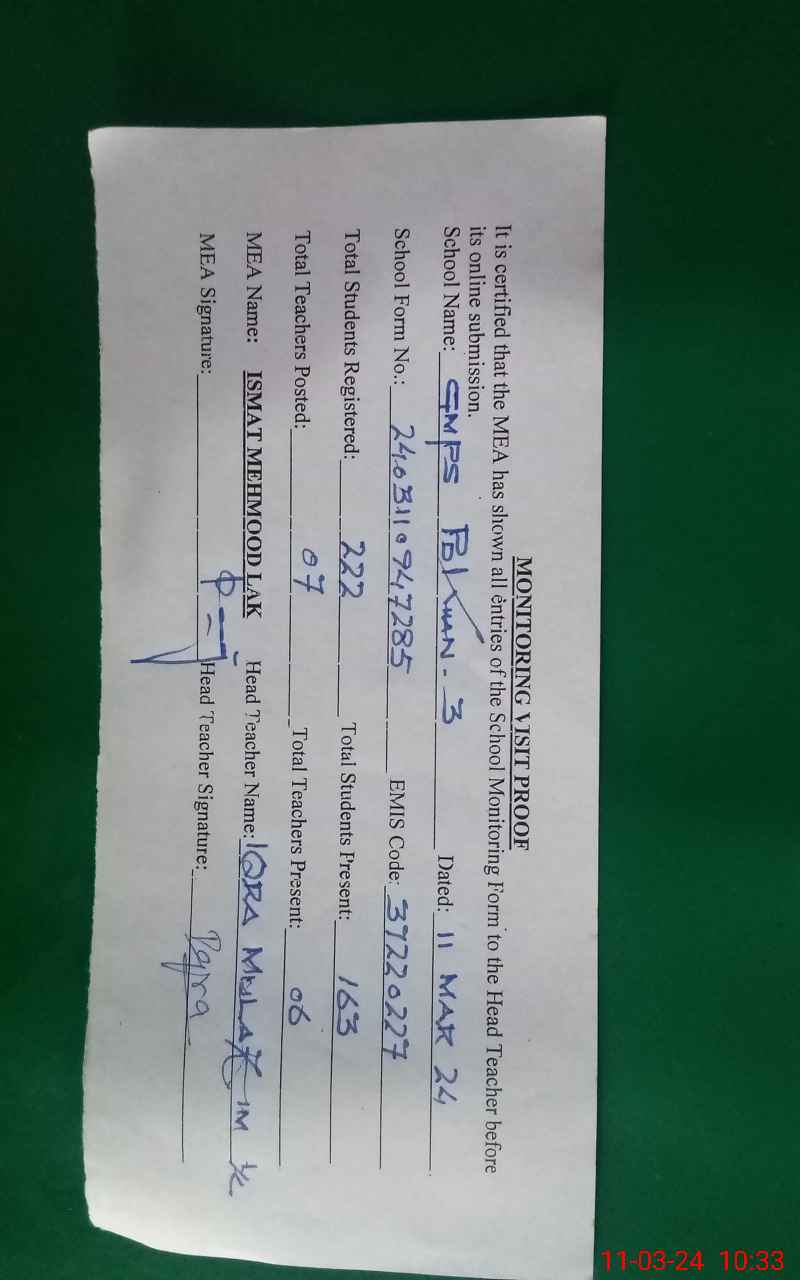 MONITORING VISIT PROOF
It is certified that the MEA has shown all entries of the School Monitoring Form to the Head Teacher before
its online submission.
School Name: GMPS Dated: 11 MAR 24
School Form No.: 2403110947285 EMIS Code: 37220227
Total Students Registered: 222 Total Students Present: 163
Total Teachers Posted: 07 Total Teachers Present: 06
MEA Name: ISMAT MEHMOOD LAK Head Teacher Name: IQRA
MEA Signature: Head Teacher Signature: Iqra
11-03-24 10:33